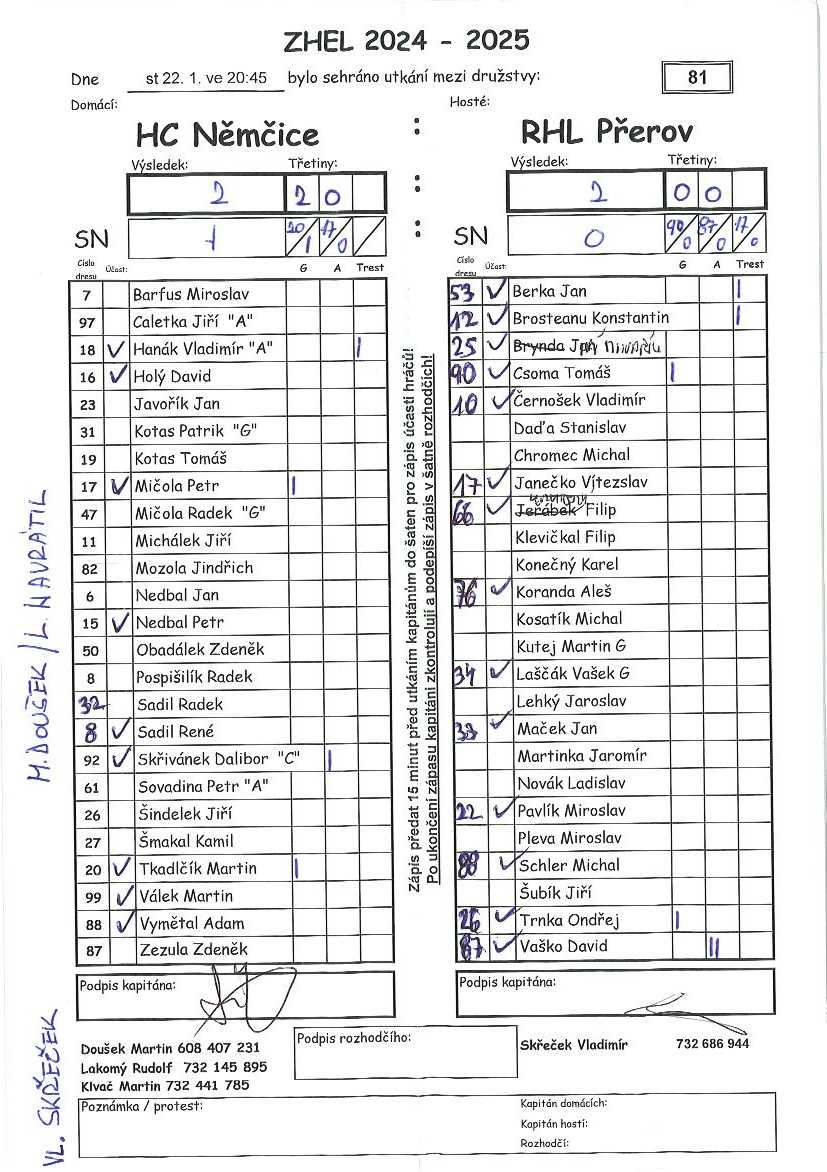 ZHEL 2024 - 2025
Dne st 22. 1. ve 20:45 bylo sehráno utkání mezi družstvy: 81
Domácí: Hosté:
HC Němčice : RHL Přerov
Výsledek: Třetiny: Výsledek: Třetiny:
2 2 0 : 2 0 0
SN 1 20/1 17/0 : SN 0 90/0 87/0 17/0
Číslo dresu Účast: G A Trest
7 Barfus Miroslav
97 Caletka Jiří "A"
18 ✓ Hanák Vladimír "A" |
16 ✓ Holý David
23 Javořík Jan
31 Kotas Patrik "G"
19 Kotas Tomáš
17 ✓ Mičola Petr |
47 Mičola Radek "G"
11 Michálek Jiří
82 Mozola Jindřich
6 Nedbal Jan
15 ✓ Nedbal Petr
50 Obadálek Zdeněk
8 Pospišilík Radek
32 Sadil Radek
8 ✓ Sadil René
92 ✓ Skřivánek Dalibor "C" |
61 Sovadina Petr "A"
26 Šindelek Jiří
27 Šmakal Kamil
20 ✓ Tkadlčík Martin |
99 ✓ Válek Martin
88 ✓ Vymětal Adam
87 Zezula Zdeněk
Podpis kapitána:
Zápis předat 15 minut před utkáním kapitánům do šaten pro zápis účasti hráčů!
Po ukončení zápasu kapitáni zkontrolují a podepíší zápis v šatně rozhodčích!
Číslo dresu Účast: G A Trest
53 ✓ Berka Jan |
12 ✓ Brosteanu Konstantin |
25 ✓ Brynda Jan
90 ✓ Csoma Tomáš |
10 ✓ Černošek Vladimír
Daďa Stanislav
Chromec Michal
17 ✓ Janečko Vítezslav
66 ✓ Jeřábek Filip
Klevičkal Filip
Konečný Karel
76 ✓ Koranda Aleš
Kosatík Michal
Kutej Martin G
34 ✓ Laščák Vašek G
Lehký Jaroslav
33 ✓ Maček Jan
Martinka Jaromír
Novák Ladislav
22 ✓ Pavlík Miroslav
Pleva Miroslav
88 ✓ Schler Michal
Šubík Jiří
26 ✓ Trnka Ondřej |
87 ✓ Vaško David ||
Podpis kapitána:
M. DOUŠEK / L. NAVRÁTIL
VL. SKŘEČEK
Doušek Martin 608 407 231
Lakomý Rudolf 732 145 895
Klvač Martin 732 441 785
Podpis rozhodčího:
Skřeček Vladimír 732 686 944
Poznámka / protest:
Kapitán domácích:
Kapitán hostí:
Rozhodčí: